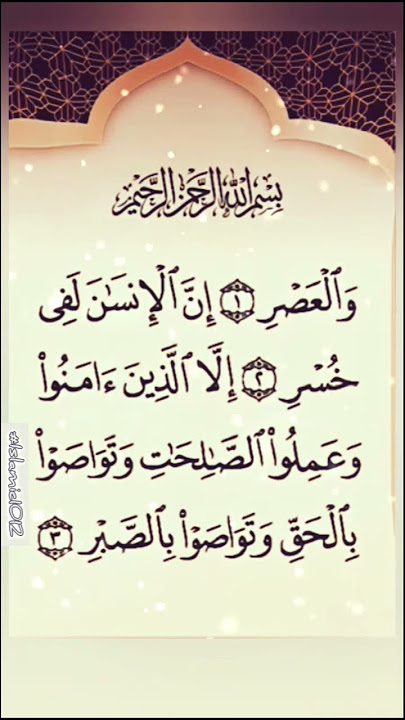 بِسْمِ اللَّهِ الرَّحْمَٰنِ الرَّحِيمِ
وَٱلْعَصْرِ ١ إِنَّ ٱلْإِنسَٰنَ لَفِى
خُسْرٍ ٢ إِلَّا ٱلَّذِينَ ءَامَنُوا۟
وَعَمِلُوا۟ ٱلصَّٰلِحَٰتِ وَتَوَاصَوْا۟
بِٱلْحَقِّ وَتَوَاصَوْا۟ بِٱلصَّبْرِ ٣
#Islamic1012